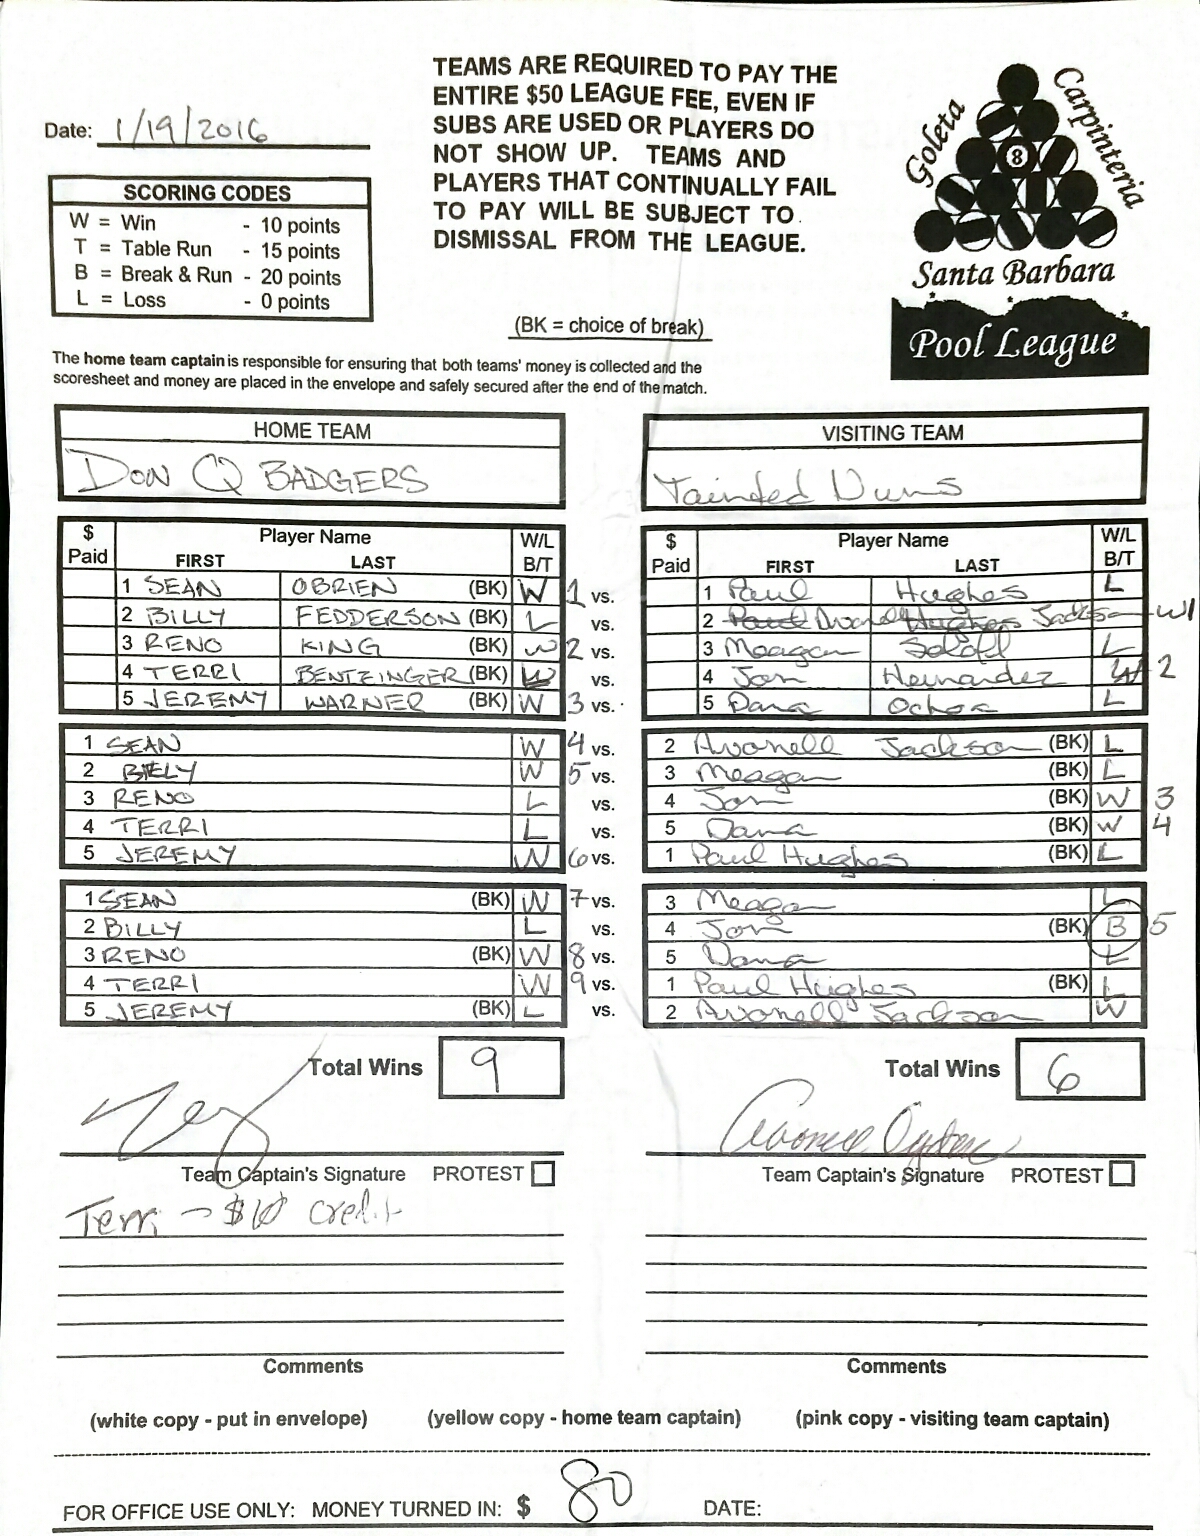 TEAMS ARE REQUIRED TO PAY THE
ENTIRE $50 LEAGUE FEE, EVEN IF
SUBS ARE USED OR PLAYERS DO
NOT SHOW UP. TEAMS AND
PLAYERS THAT CONTINUALLY FAIL
TO PAY WILL BE SUBJECT TO
DISMISSAL FROM THE LEAGUE.
Date: 1/19/2016
SCORING CODES
W = Win - 10 points
T = Table Run - 15 points
B = Break & Run - 20 points
L = Loss - 0 points
Goleta
Carpinteria
8
Santa Barbara
Pool League
(BK = choice of break)
The home team captain is responsible for ensuring that both teams' money is collected and the
scoresheet and money are placed in the envelope and safely secured after the end of the match.
HOME TEAM
DON Q BADGERS
VISITING TEAM
Tainted Nuns
$ Paid Player Name FIRST LAST W/L B/T
1 SEAN OBRIEN (BK) W 1 vs.
2 BILLY FEDDERSON (BK) L vs.
3 RENO KING (BK) W 2 vs.
4 TERRI BENTZINGER (BK) vs.
5 JEREMY WARNER (BK) W 3 vs.
$ Paid Player Name FIRST LAST W/L B/T
1 Paul Hughes L
2 Paul Avonell Hughes Jackson W 1
3 Meagan L
4 Jon Hernandez W 2
5 Dana Ochoa L
1 SEAN W 4 vs.
2 BILLY W 5 vs.
3 RENO L vs.
4 TERRI L vs.
5 JEREMY W 6 vs.
2 Avonell Jackson (BK) L
3 Meagan (BK) L
4 Jon (BK) W 3
5 Dana (BK) W 4
1 Paul Hughes (BK) L
1 SEAN (BK) W 7 vs.
2 BILLY L vs.
3 RENO (BK) W 8 vs.
4 TERRI W 9 vs.
5 JEREMY (BK) L vs.
3 Meagan L
4 Jon (BK) B 5
5 Dana L
1 Paul Hughes (BK) L
2 Avonell Jackson W
Total Wins 9
Total Wins 6
Team Captain's Signature PROTEST
Team Captain's Signature PROTEST
Terri - $10 credit
Comments
Comments
(white copy - put in envelope) (yellow copy - home team captain) (pink copy - visiting team captain)
FOR OFFICE USE ONLY: MONEY TURNED IN: $ 80 DATE: